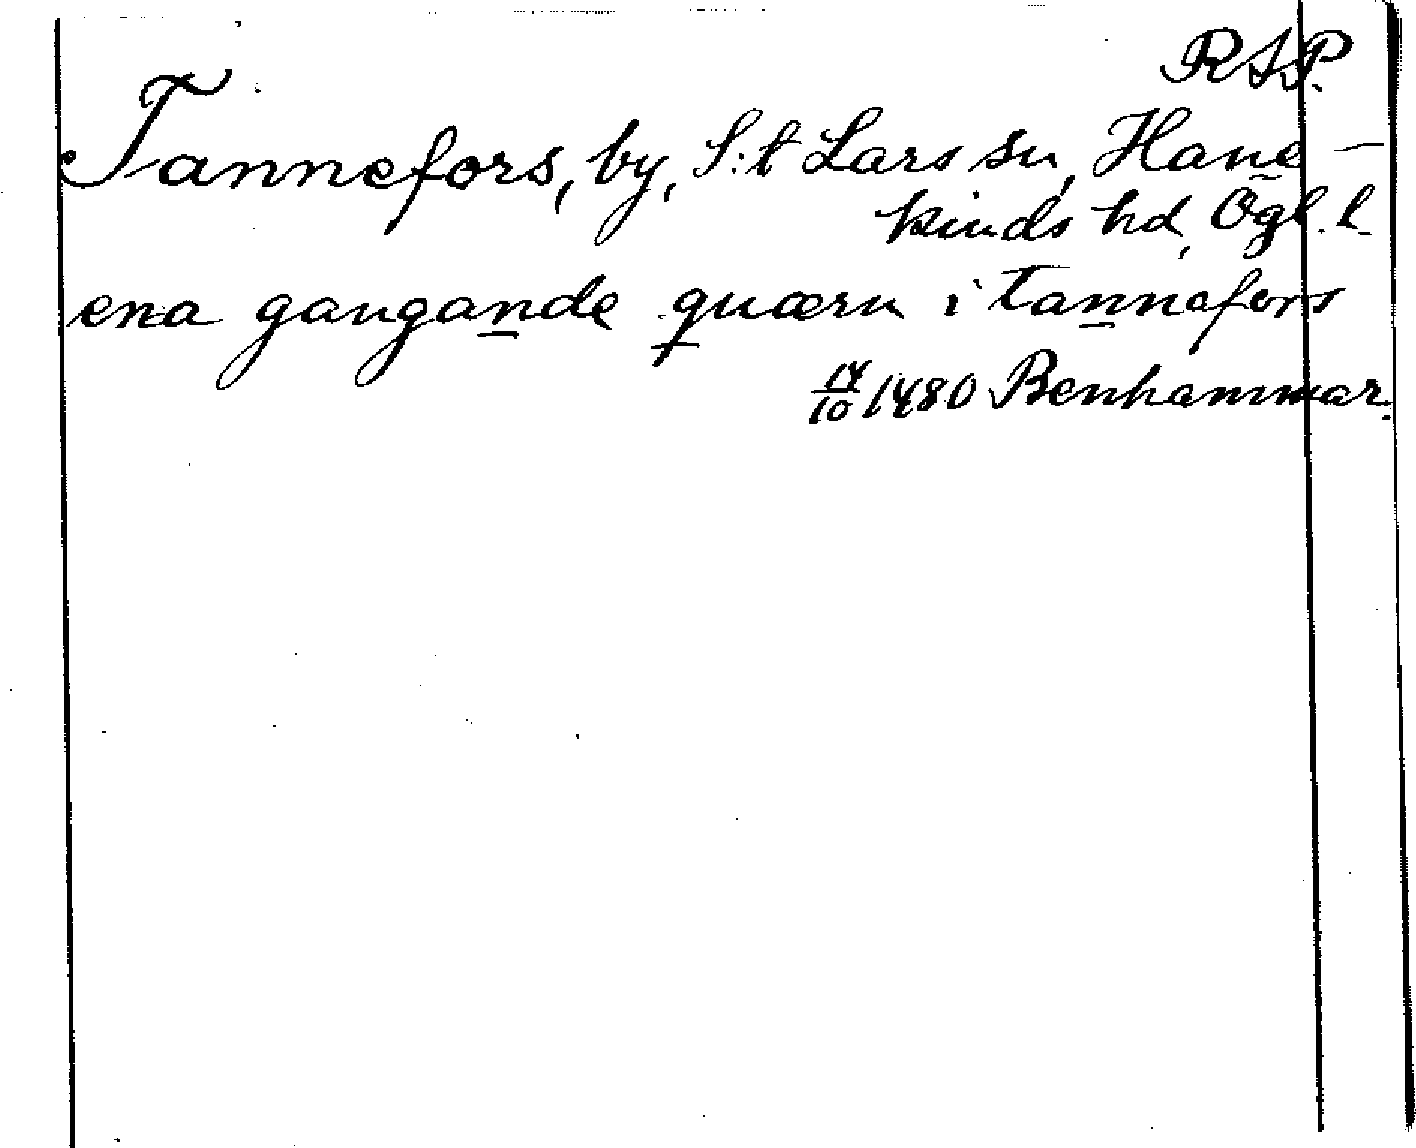 RAP.
Tannefors, by, S:t Lars sn, Hane-
kinds hd, Ögl. l.
ena gangande quærn i tannefors
14/10 1480 Benhammar.